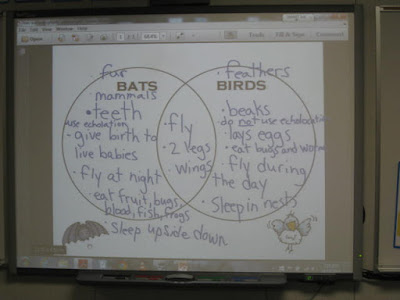 File Edit View Window Help
Open
Tools
Fill & Sign
Comment
BATS
• fur
• mammals
• teeth
use echolation
• give birth to
live babies
• fly at night
• eat fruit, bugs,
blood, fish, frogs
• Sleep upside down
• fly
• 2 legs
• wings
BIRDS
• feathers
• beaks
do not use echolocation
• lays eggs
• eat bugs and worms
• fly during
the day
• Sleep in nests